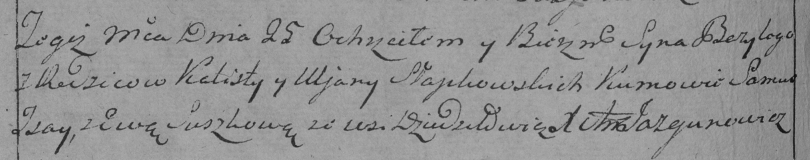 Tegoż Mca Dnia 25 Ochrzciłem y Bierzm Syna Bazylego
z Rodzicow Kalisty y Uljany Słapkowskich Kumowie Samuś
Isay, z Ewą Suszkową ze wsi Dziedziłowicz X Jazgunowicz